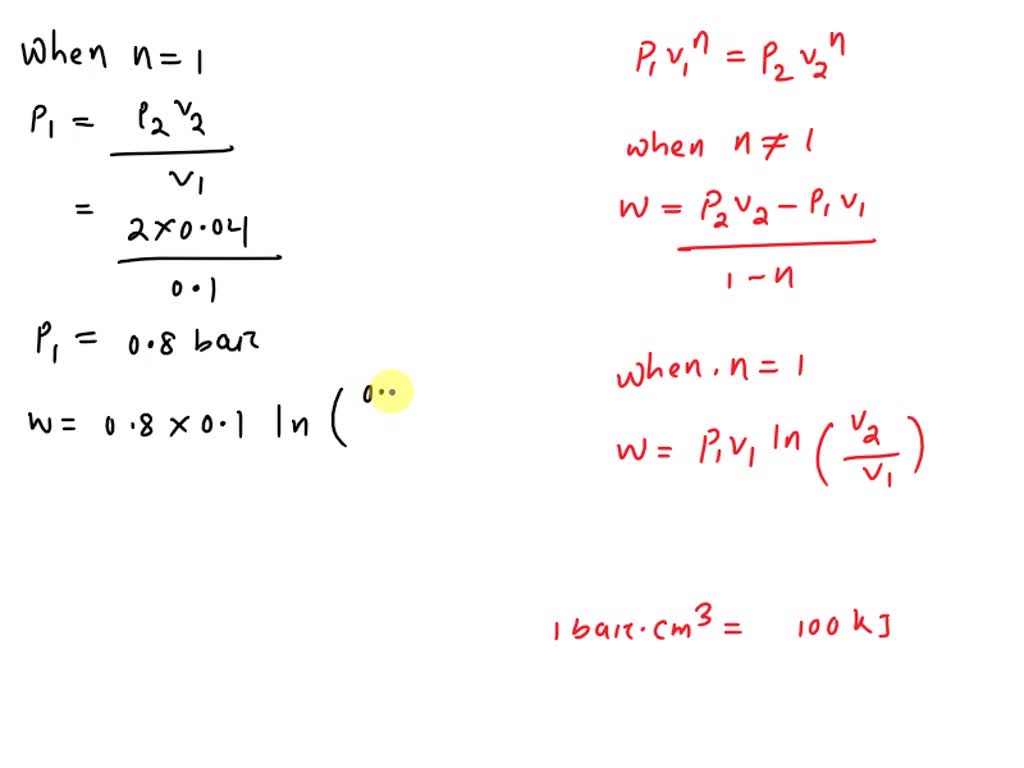 When n = 1
P₁ = P₂ V₂
V₁
= 2 × 0.04
0.1
P₁ = 0.8 bar
W = 0.8 × 0.1 ln ( 0..
P₁ V₁ⁿ = P₂ V₂ⁿ
when n ≠ 1
W = P₂ V₂ − P₁ V₁
1 − n
when . n = 1
W = P₁ V₁ ln ( V₂
V₁ )
1 bar . cm³ = 100 kJ